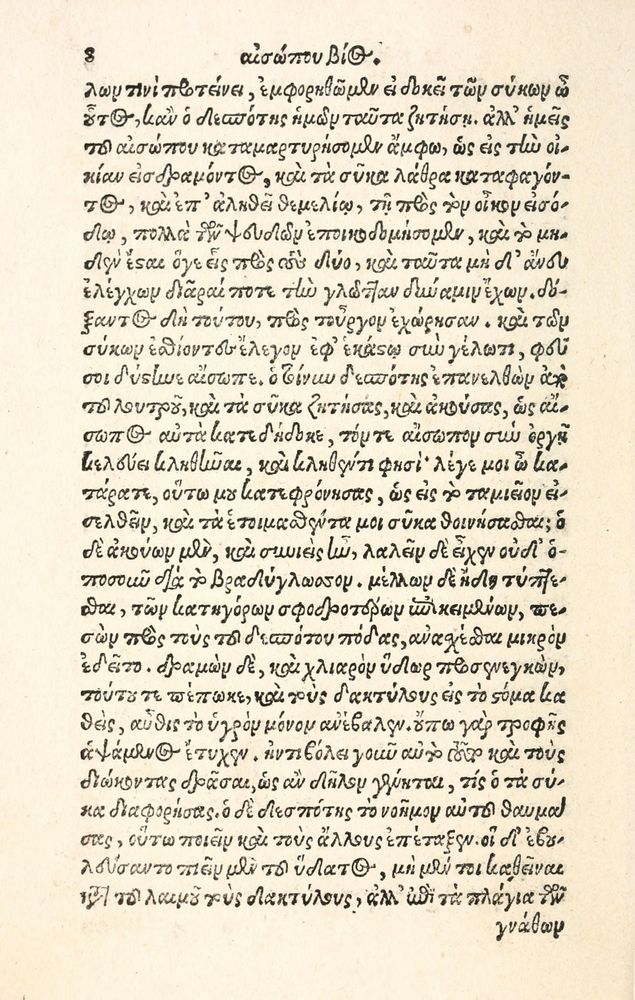 8 αἰσώπου βίος.
λων τινὶ προτείνει, ἐμφορηθῶμεν εἰ δοκεῖ τῶν σύκων ὦ
οὗτος, κἂν ὁ δεσπότης ἡμῶν ταῦτα ζητήσῃ. ἀλλ' ἡμεῖς
τοῦ αἰσώπου καταμαρτυρήσομεν ἄμφω, ὡς εἰς τὴν οἰ-
κίαν εἰσδραμόντος, καὶ τὰ σῦκα λάθρα καταφαγόν-
τος, καὶ ἐπ' ἀληθεῖ θεμελίῳ, τῇ πρὸς τὸν οἶκον εἰσό-
δῳ, πολλὰ τῶν ψευδῶν ἐποικοδομήσομεν, καὶ τὸ μη-
δὲν ἔσται ὅγε εἷς πρὸς τοὺς δύο, καὶ ταῦτα μὴ δ' ἄνευ
ἐλέγχων διᾶραί ποτε τὴν γλῶτταν δύναμιν ἔχων. δό-
ξαντος δὴ τούτου, πρὸς τοὖργον ἐχώρησαν. καὶ τῶν
σύκων ἐσθίοντες ἔλεγον ἐφ' ἑκάστῳ σὺν γέλωτι, φεῦ
σοι δύστηνε αἴσωπε. ὁ τοίνυν δεσπότης ἐπανελθὼν ἀπὸ
τοῦ λουτροῦ, καὶ τὰ σῦκα ζητήσας, καὶ ἀκούσας, ὡς αἴ-
σωπος αὐτὰ κατεδήδοκε, τόν τε αἴσωπον σὺν ὀργῇ
κελεύει κληθῆναι, καὶ κληθέντι φησί· λέγε μοι ὦ κα-
τάρατε, οὕτω μου κατεφρόνησας, ὡς εἰς τὸ ταμιεῖον εἰ-
σελθεῖν, καὶ τὰ ἑτοιμασθέντα μοι σῦκα θοινήσασθαι; ὁ
δὲ ἀκούων μὲν, καὶ συνιεὶς ἦν, λαλεῖν δὲ εἶχεν οὐδ' ὁ-
ποσοῦν διὰ τὸ βραδύγλωσσον. μέλλων δὲ ἤδη τύπτε-
σθαι, τῶν κατηγόρων σφοδροτέρων ἐπικειμένων, πε-
σὼν πρὸς τοὺς τοῦ δεσπότου πόδας, ἀνασχέσθαι μικρὸν
ἐδεῖτο. δραμὼν δὲ, καὶ χλιαρὸν ὕδωρ προσενεγκὼν,
τοῦτό τε πέπωκε, καὶ τοὺς δακτύλους εἰς τὸ στόμα κα
θεὶς, αὖθις τὸ ὑγρὸν μόνον ἀνέβαλεν. οὔπω γὰρ τροφῆς
ἁψάμενος ἔτυχεν. ἠντιβόλει γοῦν αὐτὸ τοῦτο καὶ τοὺς
διώκοντας δρᾶσαι, ὡς ἂν δῆλον γένηται, τίς ὁ τὰ σύ-
κα διαφορήσας. ὁ δὲ δεσπότης τὸ νοῆμον αὐτοῦ θαυμά
σας, οὕτω ποιεῖν καὶ τοὺς ἄλλους ἐπέταξεν. οἱ δ' ἐβου
λεύσαντο πιεῖν μὲν τοῦ ὕδατος, μὴ μέν τοι καθεῖναι
κατὰ τοῦ λαιμοῦ τοὺς δακτύλους, ἀλλ' ἐπὶ τὰ πλάγια τῶν
γνάθων